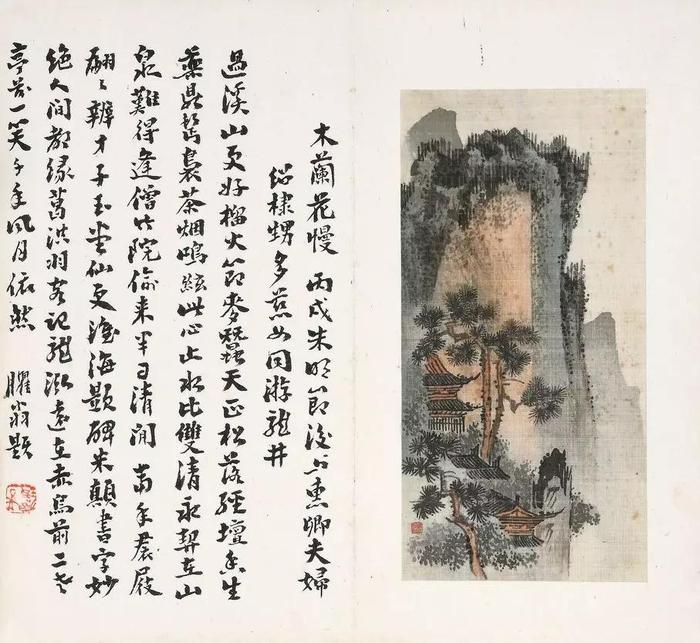 木蘭花慢 丙戌朱明節後與卿夫婦
紹棣甥多慈女同游龍井
過溪山更好榴火節麥蠶天正松落經壇香生
藥鼎鬢裊茶烟鳴絃此心止水比雙清永契在山
泉難得逢僧竹院偷來半日清閒 當年裙屐
翩翩辨才子玉堂仙更淮海題碑米顛書字妙
絕人間都緣葛洪羽客記龍泓遠在赤烏前二老
亭前一笑千年風月依然 臞翁題